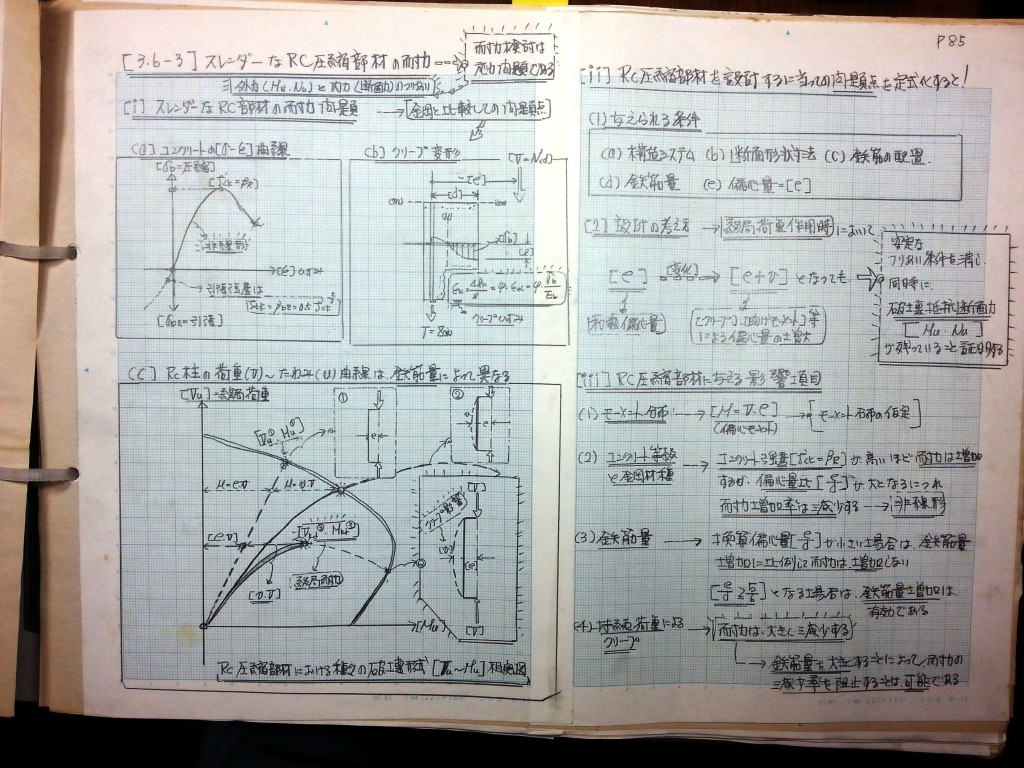 P85
[3.6-3] スレンダーなRC圧縮部材の耐力
耐力検討は
応力問題である
外力(Mu.Nu)と内力(断面力)のつりあい
[i] スレンダーなRC部材の耐力問題 → [鋼と比較しての問題点]
(a) コンクリートの[σ-ε]曲線
[σb=圧縮]
[fck=βR]
非線形
[ε]ひずみ
引張強度は
[σbz=引張]
(b) クリープ変形
[e]
[d]
[σb]
[ε]
クリープひずみ
(C) RC柱の荷重(V)~たわみ(υ)曲線は、鉄筋量によって異なる
[Vu]=終局荷重
①
②
[e]
M=e.V
M=υ.V
[e.V]
[υ.V]
終局耐力
クリープ影響
[V]
[e]
[V]
[Mu]
RC圧縮部材における種々の破壊形式[Vu~Mu]相関図
[ii] RC圧縮部材を設計するに当っての問題点を定式化すると!
(1) 与えられる条件
(a) 構造システム (b) 断面形状寸法 (c) 鉄筋の配置
(d) 鉄筋量 (e) 偏心量=[e]
[2] 設計の考え方 → 終局荷重作用時において
[e] 変化 [e+υ] となっても
初期偏心量
[クリープ、曲げモーメント]等
による偏心量の増大
安定な
つりあい条件を満し
同時に、
破壊抵抗断面力
[Mu.Nu]
が残っていること証明する
[iii] RC圧縮部材に与える影響項目
(1) モーメント分布 → [M=V.e] → [モーメント分布の仮定]
(偏心モーメント)
(2) コンクリート等級 → コンクリート強度[fck=βR]が高いほど耐力は増加
と鋼材種
するが、偏心量比[e/d]が大となるにつれ
耐力増加率は減少する → 非線形
(3) 鉄筋量 → 換算偏心量[e/d]が小さい場合は、鉄筋量
増加に比例して耐力は増加しない
となる場合は、鉄筋量増加は、
有効である
(4) 持続荷重による → 耐力は、大きく減少する
クリープ
→ 鉄筋量を大きくすることによって耐力の
減少率を阻止することは可能である